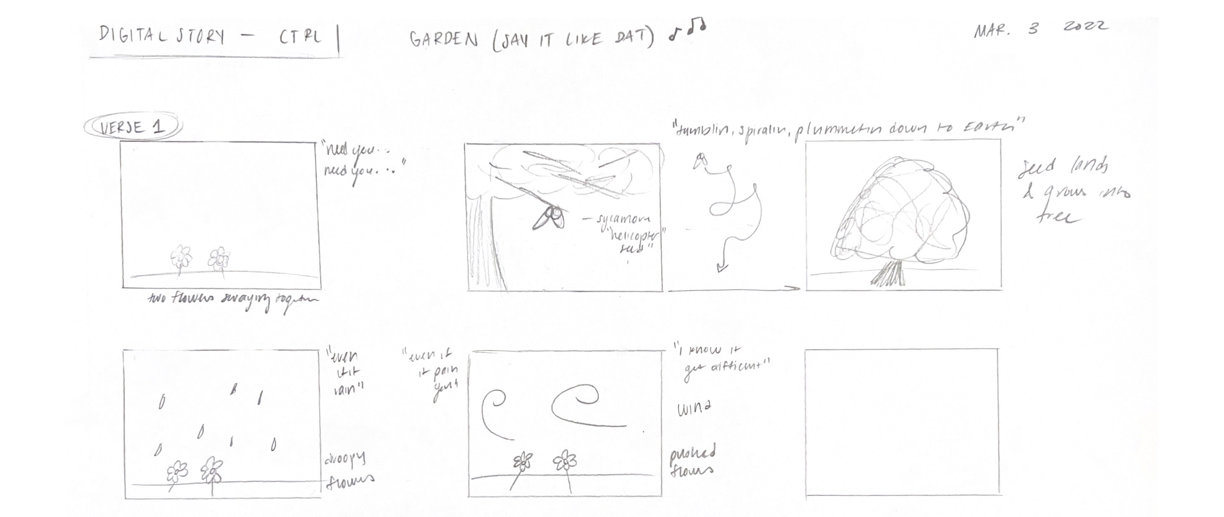 DIGITAL STORY — CTRL
GARDEN (SAY IT LIKE DAT)
MAR. 3 2022
VERSE 1
"need you..
need you..."
two flowers swaying together
— sycamore
"helicopter
seed"
"tumblin, spiralin, plummetin down to EARTH"
seed lands
& grows into
tree
"even
if it
rain"
droopy
flowers
"even if
it pain
you"
"I know it
get difficult"
wind
pushed
flowers